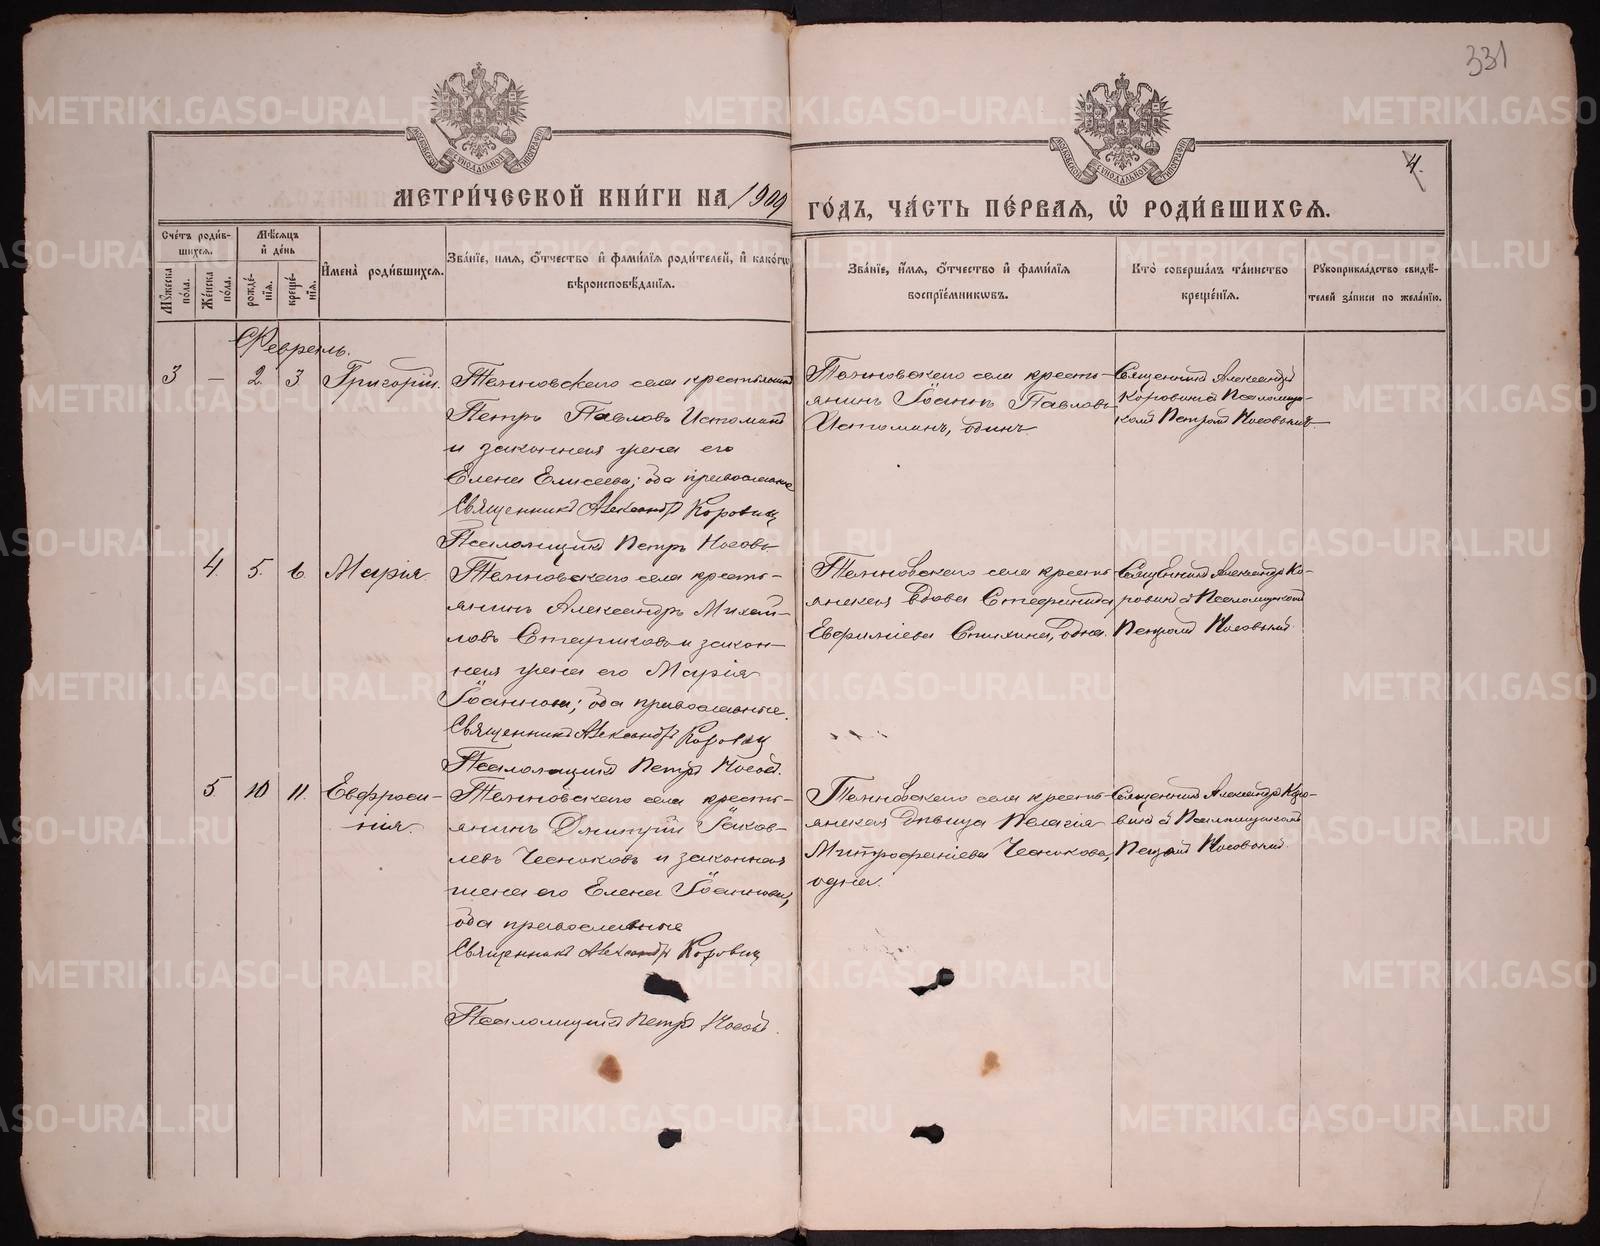 331
4.
МЕТРИ́ЧЕСКОЙ КНИ́ГИ НА 1909 ГО́ДЪ, ЧА́СТЬ ПЕ́РВАЯ, Ѡ҆ РОДИ́ВШИХСЯ.
Сче́тъ роди́вшихся.
Му́жеска по́ла.
Же́нска по́ла.
Мѣ́сяцъ и҆ де́нь
рожде́нїя.
креще́нїя.
И҆мена̀ роди́вшихся.
Зва́нїе, имя, ѻ҆́тчество и҆ фами́лїя роди́телей, и҆ како́гѡ
вѣроисповѣ́данїя.
Зва́нїе, и҆́мя, ѻ҆́тчество и҆ фами́лїя
воспрїе́мниковъ.
Кто̀ соверша́лъ та́инство
креще́нїя.
Рꙋкоприкла́дство свидѣ́-
телей за́писи по жела́нїю.
Февраль.
3 – 2. 3 Григорій.
села крестьянинъ
Петръ Павловъ Истоминъ
и законная жена его
Елена Елисеева; оба православные
Священникъ Александръ Коровин
Псаломщикъ Петръ Носовъ
села кресть-
янинъ Іоаннъ Павловъ
Истоминъ, одинъ.
Священникъ Александръ
Коровинъ съ Псаломщи-
комъ Петромъ Носовымъ.
4. 5. 6. Марія.
села кресть-
янинъ Александръ Михай-
ловъ и закон-
ная жена его Марія
Іоаннова; оба православные.
Священникъ Александръ Коровин
Псаломщикъ Петръ Носовъ.
села кресть-
янская вдова Стефанида
Одна.
Священникъ Александръ Ко-
ровинъ съ Псаломщикомъ
Петромъ Носовымъ.
5. 10 11. Евфроси-
нія.
села кресть-
янинъ Димитрій Іаков-
левъ Чесноковъ и законная
жена его Елена Іоаннова,
оба православные
Священникъ Александръ Коровин
Псаломщикъ Петръ Носовъ.
села кресть-
янская дѣвица Пелагія
Митрофаніева Чеснокова,
одна.
Священникъ Александръ Коро-
винъ съ Псаломщикомъ
Петромъ Носовымъ.
METRIKI.GASO-URAL.RU